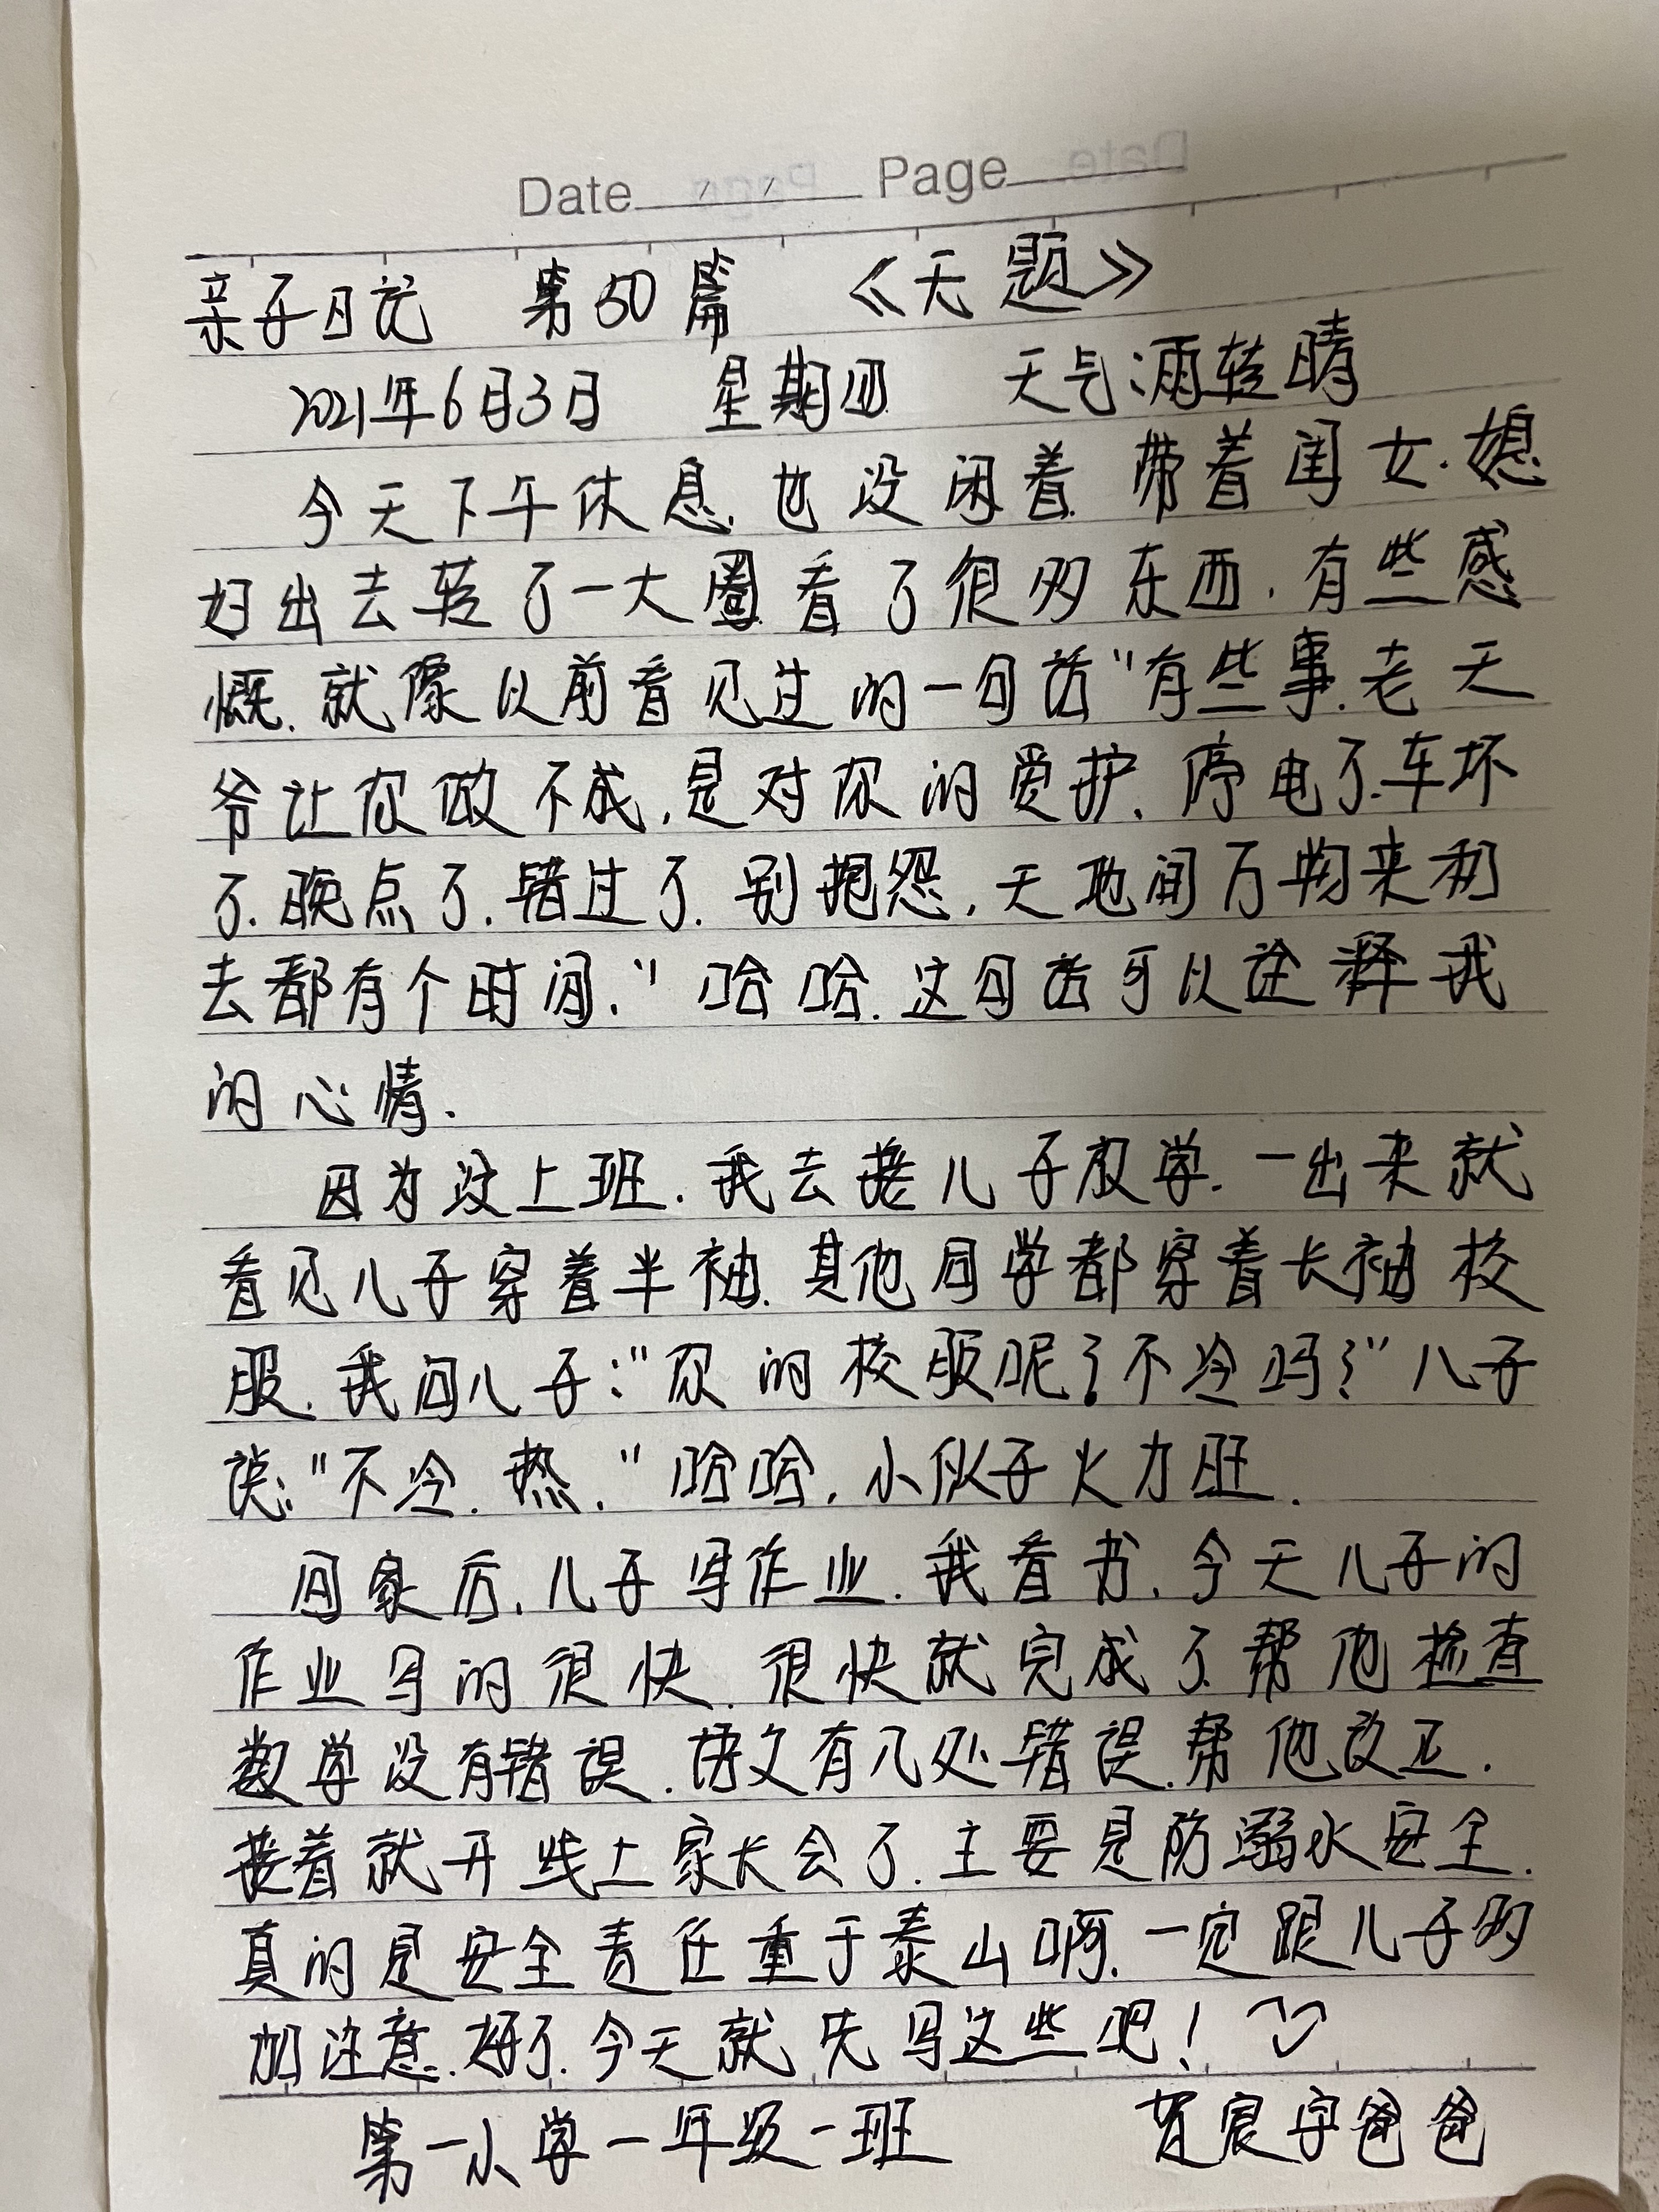 Date / / Page
亲子日记 第50篇 《无题》
2021年6月3日 星期四 天气:雨转晴
今天下午休息.也没闲着.带着闺女.媳
妇出去转了一大圈.看了很多东西.有些感
慨.就像以前看见过的一句话"有些事.老天
爷让你做不成,是对你的爱护.停电了.车坏
了.晚点了.错过了.别抱怨,天地间万物来和
去都有个时间."哈哈.这句话可以诠释我
的心情.
因为没上班.我去接儿子放学.一出来就
看见儿子穿着半袖.其他同学都穿着长袖校
服.我问儿子:"你的校服呢?不冷吗?"儿子
说:"不冷.热."哈哈,小伙子火力旺.
回家后,儿子写作业.我看书.今天儿子的
作业写的很快.很快就完成了.帮他检查
数学没有错误.语文有几处错误.帮他改正.
接着就开线上家长会了.主要是防溺水安全.
真的是安全责任重于泰山啊.一定跟儿子多
加注意.好了.今天就先写这些吧!
第一小学一年级一班 贺宸宇爸爸